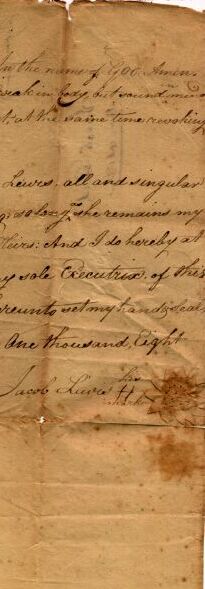 In the name of God. Amen.
weak in body, but sound mind
at the same time revoking
Lewes, all and singular
so long as she remains my
Heirs: And I do hereby at
my sole Executrix, of the
hereunto set my hand & Seal,
One thousand, Eight
Jacob Lewis his
mark